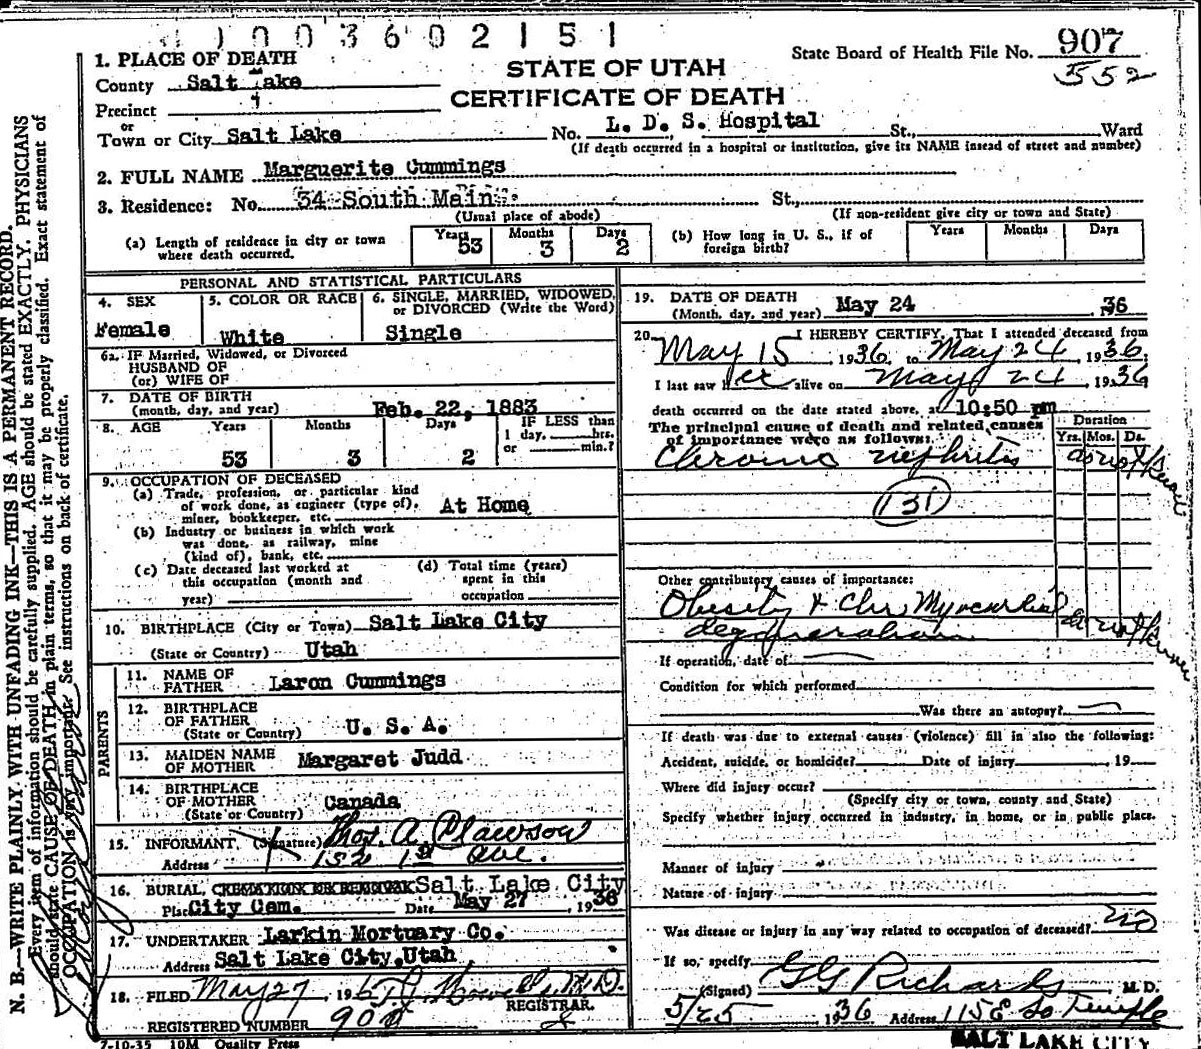 1 0 0 3 6 0 2 1 5 1
State Board of Health File No. 907
552
STATE OF UTAH
CERTIFICATE OF DEATH
1. PLACE OF DEATH
County Salt Lake
Precinct 4
or
Town or City Salt Lake No. L. D. S. Hospital St., Ward
(If death occurred in a hospital or institution, give its NAME insead of street and number)
2. FULL NAME Marguerite Cummings
3. Residence: No. 34 South Main St.,
(Usual place of abode) (If non-resident give city or town and State)
(a) Length of residence in city or town where death occurred. Years 53 Months 3 Days 2
(b) How long in U. S., if of foreign birth? Years Months Days
PERSONAL AND STATISTICAL PARTICULARS
4. SEX Female
5. COLOR OR RACE White
6. SINGLE, MARRIED, WIDOWED, or DIVORCED (Write the Word) Single
6a. IF Married, Widowed, or Divorced
HUSBAND OF
(or) WIFE OF
7. DATE OF BIRTH
(month, day, and year) Feb. 22, 1883
8. AGE Years 53 Months 3 Days 2 IF LESS than 1 day, hrs. or min.?
9. OCCUPATION OF DECEASED
(a) Trade, profession, or particular kind
of work done, as engineer (type of),
miner, bookkeeper, etc. At Home
(b) Industry or business in which work
was done, as railway, mine
(kind of), bank, etc.
(c) Date deceased last worked at
this occupation (month and
year)
(d) Total time (years)
spent in this
occupation
10. BIRTHPLACE (City or Town) Salt Lake City
(State or Country) Utah
PARENTS
11. NAME OF FATHER Laron Cummings
12. BIRTHPLACE OF FATHER
(State or Country) U. S. A.
13. MAIDEN NAME OF MOTHER Margaret Judd
14. BIRTHPLACE OF MOTHER
(State or Country) Canada
15. INFORMANT, (Signature) Thos. A. Clawson
Address 152 1st Ave.
16. BURIAL, CREMATION OR REMOVAL Salt Lake City
Place City Cem. Date May 27, 1936
17. UNDERTAKER Larkin Mortuary Co.
Address Salt Lake City, Utah
18. FILED May 27, 193 M.D.
REGISTRAR.
REGISTERED NUMBER 900
7-10-35 10M Quality Press
19. DATE OF DEATH
(Month, day, and year) May 24 , 1936
20. I HEREBY CERTIFY, That I attended deceased from
May 15, 1936, to May 24, 1936.
I last saw her alive on May 24, 1936
death occurred on the date stated above, at 10:50 pm
The principal cause of death and related causes
of importance were as follows: Duration
Yrs. Mos. Ds.
Chronic nephritis do not know
131
Other contributory causes of importance:
Obesity & Chr. Myocardial do not know
degeneration
If operation, date of
Condition for which performed
Was there an autopsy?
If death was due to external causes (violence) fill in also the following:
Accident, suicide, or homicide? Date of injury , 19
Where did injury occur?
(Specify city or town, county and State)
Specify whether injury occurred in industry, in home, or in public place.
Manner of injury
Nature of injury
Was disease or injury in any way related to occupation of deceased? no
If so, specify
(Signed) G G Richards, M. D.
5/25 1936 Address 115 E So Temple
SALT LAKE CITY
N. B.—WRITE PLAINLY, WITH UNFADING INK—THIS IS A PERMANENT RECORD.
Every item of information should be carefully supplied. AGE should be stated EXACTLY. PHYSICIANS
should state CAUSE OF DEATH in plain terms, so that it may be properly classified. Exact statement of
OCCUPATION is very important. See instructions on back of certificate.